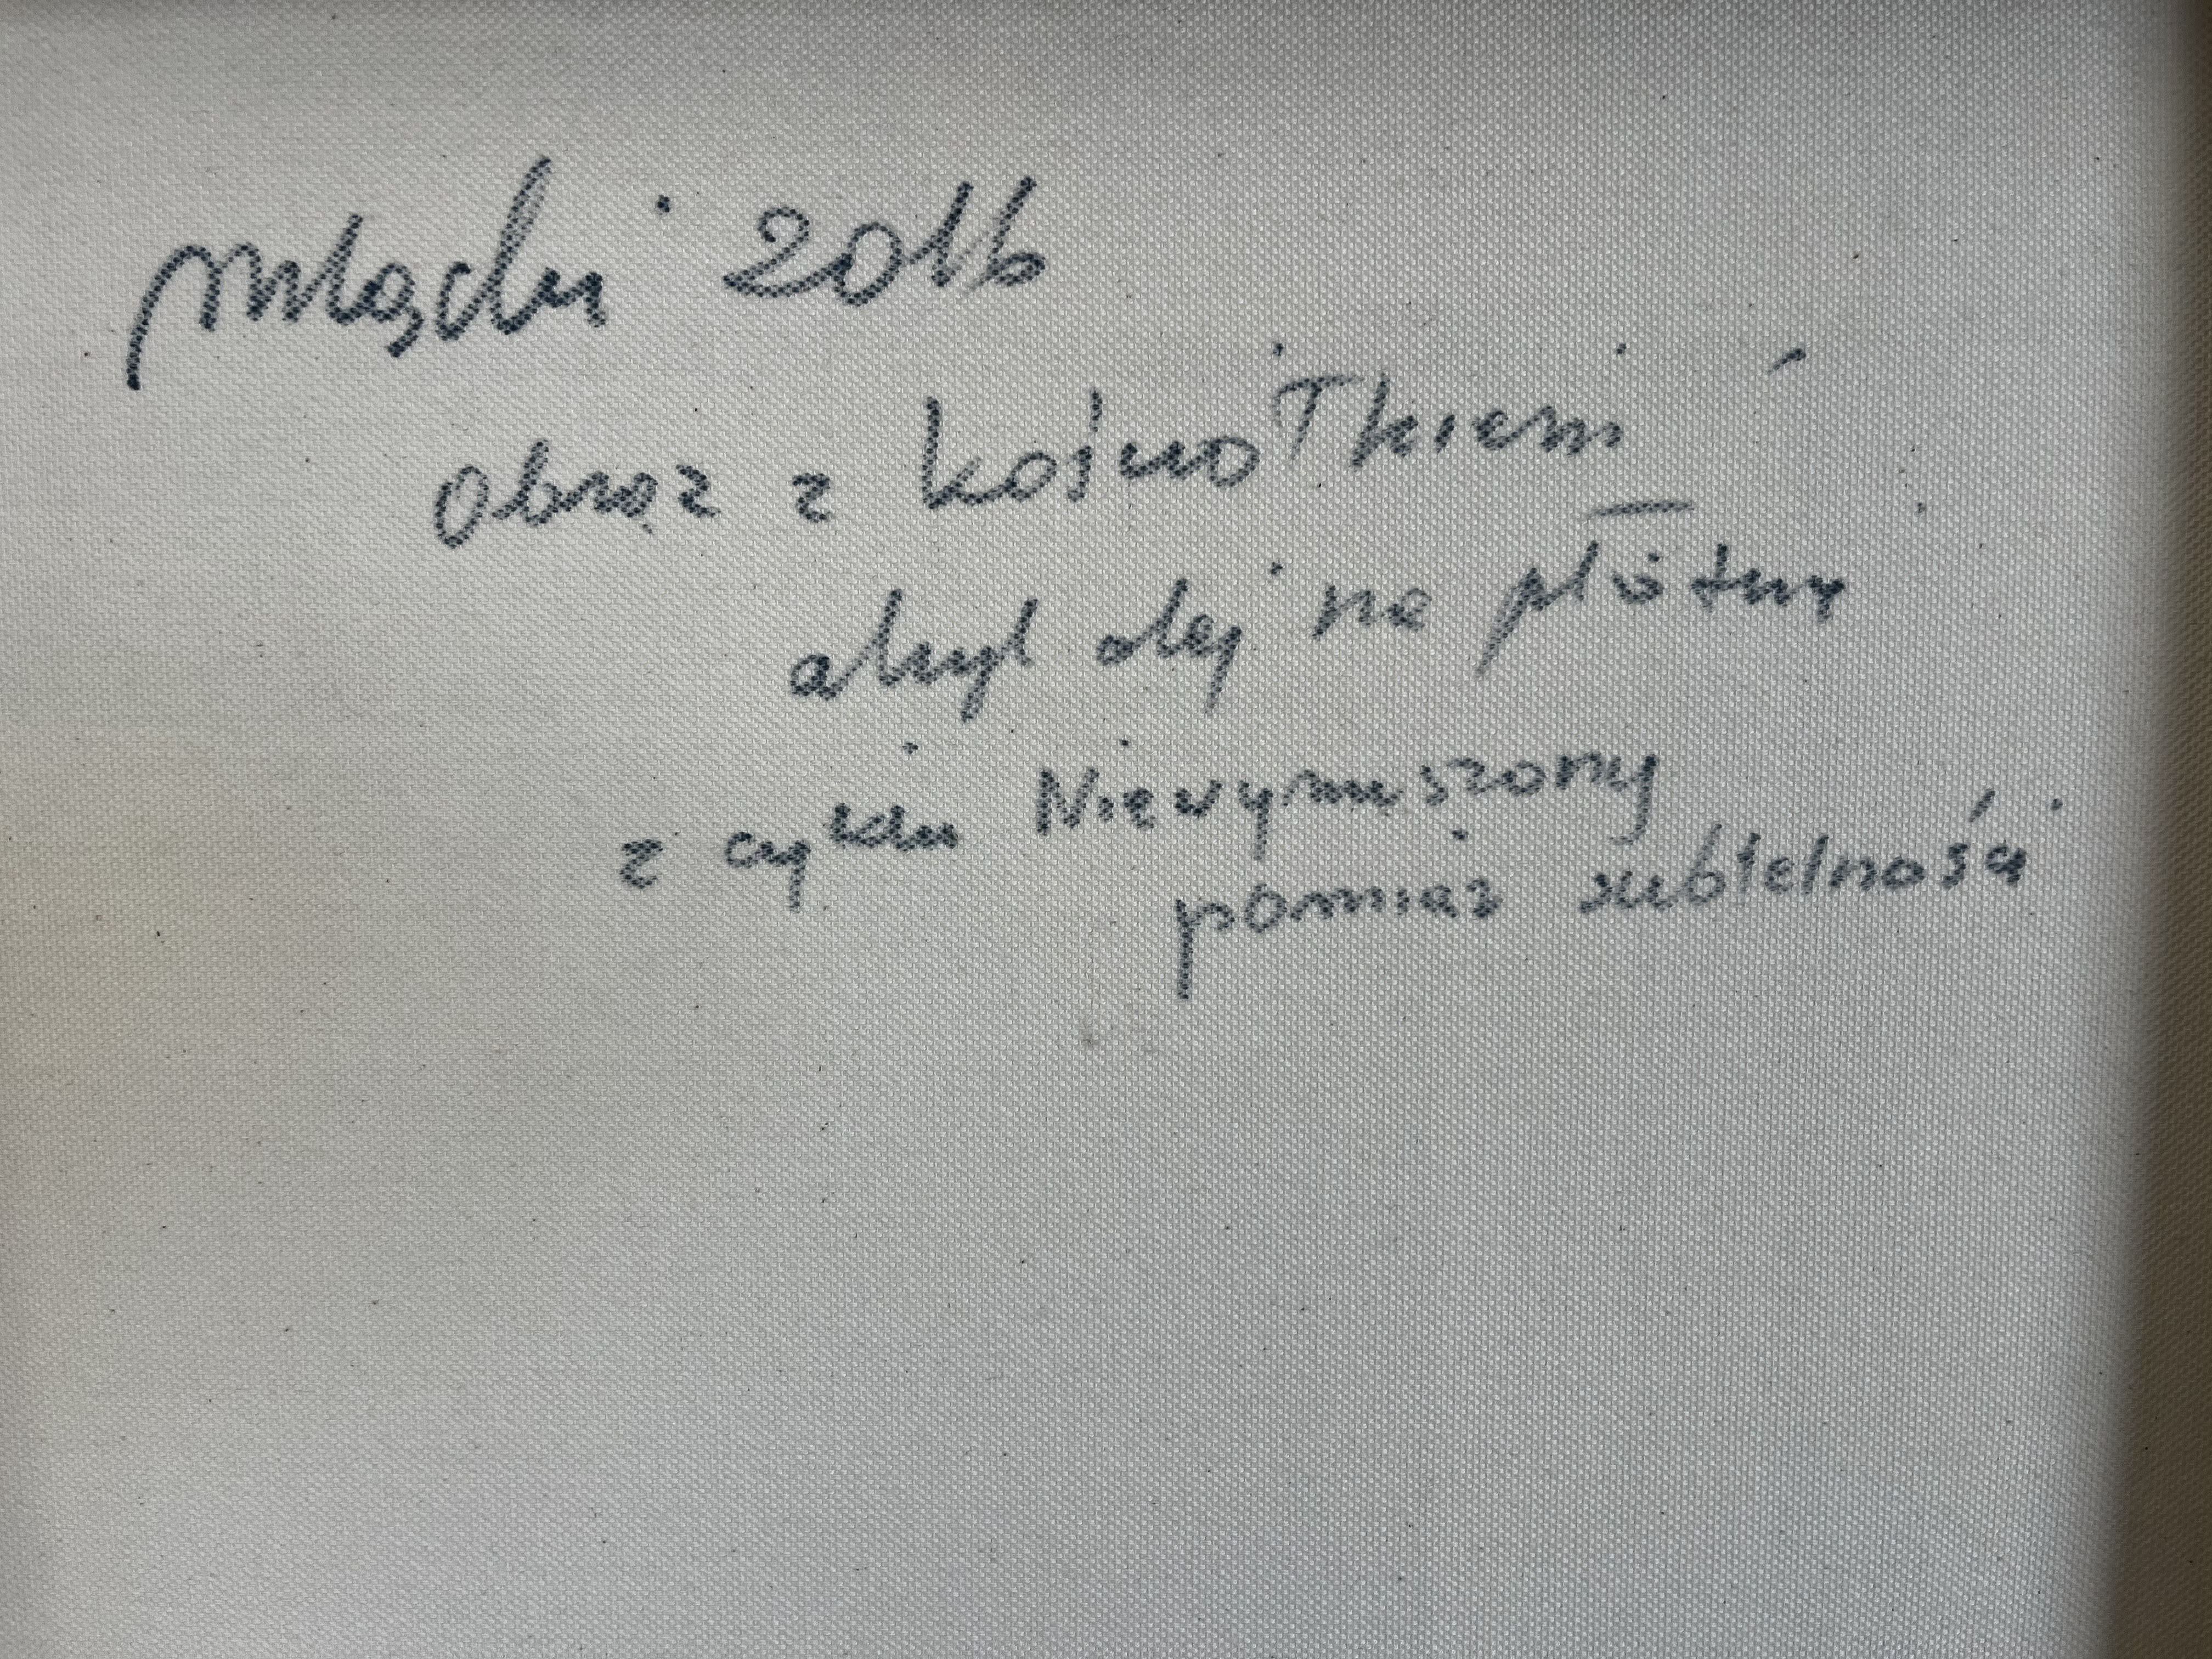 2016
obraz z kośnotkiem
akryl olej na płótnie
z cyklu Niewymuszony
pomiar subtelności